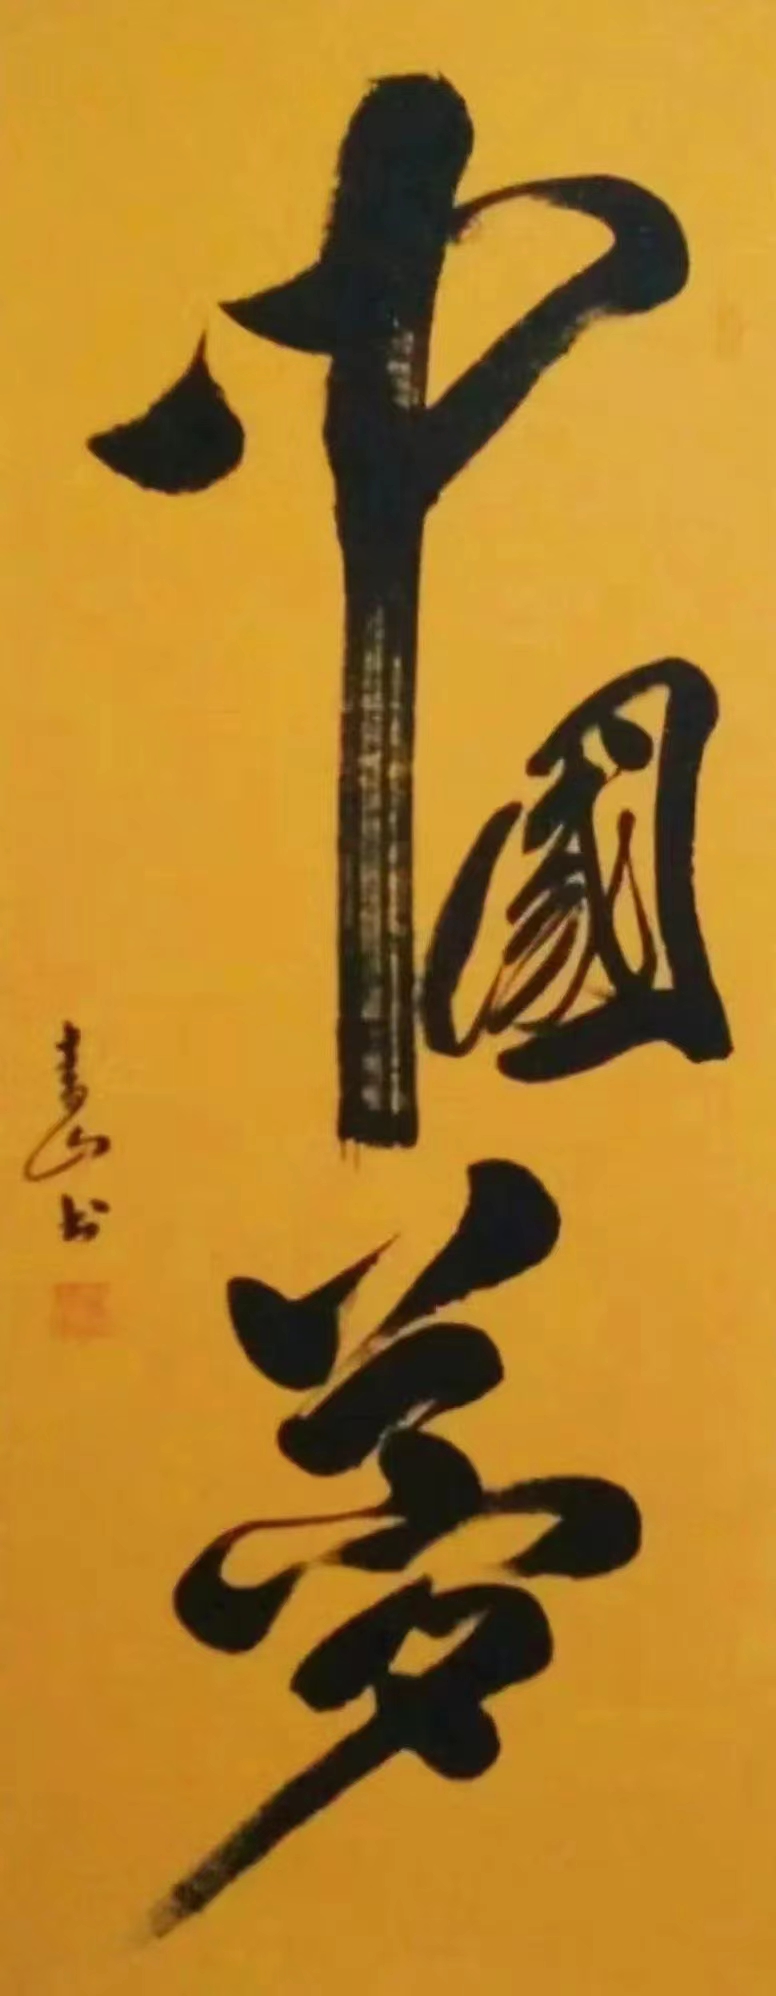 中國夢
青山书